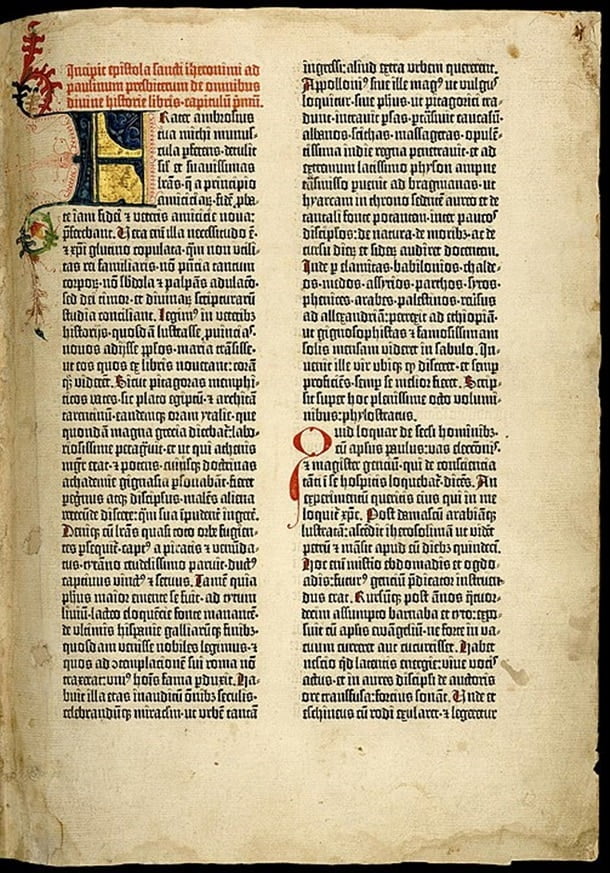 Incipit epistola sancti iheronimi ad
paulinum presbiterum de omnibus
divine historie libris· capitulū pͥmū.
Frater ambrosius
tua michi munus-
cula pferens· detulit
sil et suavissimas
lrās· q̄ a principio
amiciciaꝝ· fidē pba-
te iam fidei ⁊ veteris amicicie nova:
pferebant. Vera eni illa necessitudo ē·
⁊ xpi glutino copulata· qm̄ non utili-
tas rei familiaris· nō pn̄cia tantum
corpoꝝ· nō sbdola ⁊ palpās adulacō·
sed dei timor· et divinaꝝ scripturarū
studia conciliant. Legim⁹ in veterib⁊
historijs· quosdā lustrasse ꝓvincias·
novos adijsse pplos· maria trāsisse·
ut eos quos ex libris noverant: corā
q̄ꝫ viderēt. Sicut pitagoras memphi-
ticos vates· sic plato egiptū· ⁊ architā
tarentinū· eandemqꝫ oram ytalie· que
quondā magna grecia dicebat̃: labo-
riosissime peragravit· et ut qui athenis
mgr̄ erat· ⁊ potens· cuiusqꝫ doctrinas
achademie gignasia ꝑsonabāt· fieret
peg̃nus atqꝫ discipulus· malēs aliena
verecunde discere: qm̄ sua īpudent̃ ingerē.
Deniqꝫ cū lrās quasi toto orbe fugien-
tes ꝓsequit̃· capt⁹ a piratis ⁊ venūda-
tus· tyrāno crudelissimo paruit· duct⁹
captivus vinct⁹ ⁊ servus. Tamē quia
phūs maior emente se fuit· ad tytum
livium· lacteo eloquēcie fonte manantē·
de ultimis hispanie galliarūqꝫ finibꝫ·
quosdam venisse nobiles legimus· ⁊
quos ad ꝯtemplacionē sui roma nō
traxerat: uni⁹ hoīs fama ꝑduxit. Ha-
buit illa etas inauditū oībꝫ seculis·
celebrandūqꝫ miraclm· ut urbē tantā
ingressi: aliud extra urbem quererent.
Appolloni⁹ sive ille mag⁹ ut vulgus
loquitur· sive phūs ut pitagorici tra-
dunt· intravit psas· ꝑtransivit caucasū·
albanos· scithas· massagetas· opulē-
tissima indie regna penetravit· et ad
extremum latissimo physon ampne
tn̄smisso ꝑvenit ad bragmanas· ut
hyarcam in throno sedentē aureo et de
tantali fonte potantem· inter paucos
discipulos· de natura· de moribꝫ· ac de
cursu dieꝝ et sideꝝ audiret docentem.
Inde ꝑ elamitas· babilonios· chalde-
os· medos· assyrios· parthos· syros·
phenices· arabes· palestinos· reversus
ad allexandriā: ꝑrexit ad ethiopiā·
ut gignosophistas ⁊ famosissimam
solis mensam videret in sabulo. In-
venit ille vir ubiqꝫ qd̄ disceret· et semp
proficiēs· semꝑ se melior fieret. Scrip-
sit super hoc plenissime octo volumi-
nibus: phylostratus.
Quid loquar de seculi hominibꝫ·
cū aplūs paulus: vas electionis·
⁊ magister genciū· qui de consciencia
tāti ī se hospitis loquebat̃· dicēs. An
experimentū queritis eius qui in me
loquit̃ xpc̄. Post damascū arabiāqꝫ
lustratā: ascēdit iherosolimā ut vidēt
petrū ⁊ māsit apud eū diebꝫ quindeci.
Hoc eni misterio ebdomadis et ogdo-
adis: futur⁹ genciū p̄dicator instruen-
dus erat. Rursūqꝫ post ānos q̄tuor-
decim assumpto barnaba et tyto: expo-
suit cū aplīs ewāgeliū· ne forte in va-
cuum curreret aut cucurrisset. Habet
nescio qd latentis energie: vive vocis
actus· et in aures discipli de auctoris
ore transfusa: forcius sonat. Unde et
eschineus cū rodi exularet· ⁊ legeretur